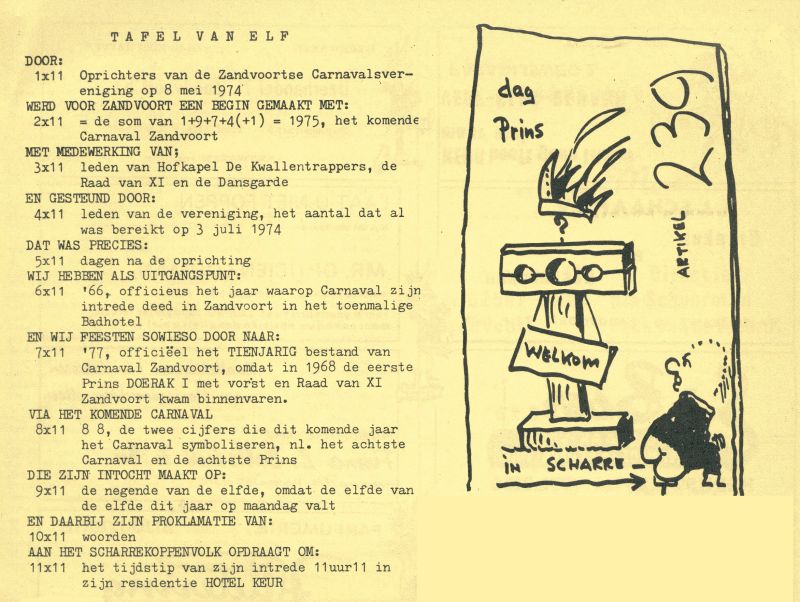 TAFEL VAN ELF
DOOR:
1x11 Oprichters van de Zandvoortse Carnavalsver-
eniging op 8 mei 1974
WERD VOOR ZANDVOORT EEN BEGIN GEMAAKT MET:
2x11 = de som van 1+9+7+4(+1) = 1975, het komende
Carnaval Zandvoort
MET MEDEWERKING VAN;
3x11 leden van Hofkapel De Kwallentrappers, de
Raad van XI en de Dansgarde
EN GESTEUND DOOR:
4x11 leden van de vereniging, het aantal dat al
was bereikt op 3 juli 1974
DAT WAS PRECIES:
5x11 dagen na de oprichting
WIJ HEBBEN ALS UITGANGSPUNT:
6x11 '66, officieus het jaar waarop Carnaval zijn
intrede deed in Zandvoort in het toenmalige
Badhotel
EN WIJ FEESTEN SOWIESO DOOR NAAR:
7x11 '77, officiëel het TIENJARIG bestand van
Carnaval Zandvoort, omdat in 1968 de eerste
Prins DOERAK I met vorst en Raad van XI
Zandvoort kwam binnenvaren.
VIA HET KOMENDE CARNAVAL
8x11 8 8, de twee cijfers die dit komende jaar
het Carnaval symboliseren, nl. het achtste
Carnaval en de achtste Prins
DIE ZIJN INTOCHT MAAKT OP:
9x11 de negende van de elfde, omdat de elfde van
de elfde dit jaar op maandag valt
EN DAARBIJ ZIJN PROKLAMATIE VAN:
10x11 woorden
AAN HET SCHARREKOPPENVOLK OPDRAAGT OM:
11x11 het tijdstip van zijn intrede 11uur11 in
zijn residentie HOTEL KEUR
dag
Prins
ARTIKEL 239
?
WELKOM
IN SCHARRE-